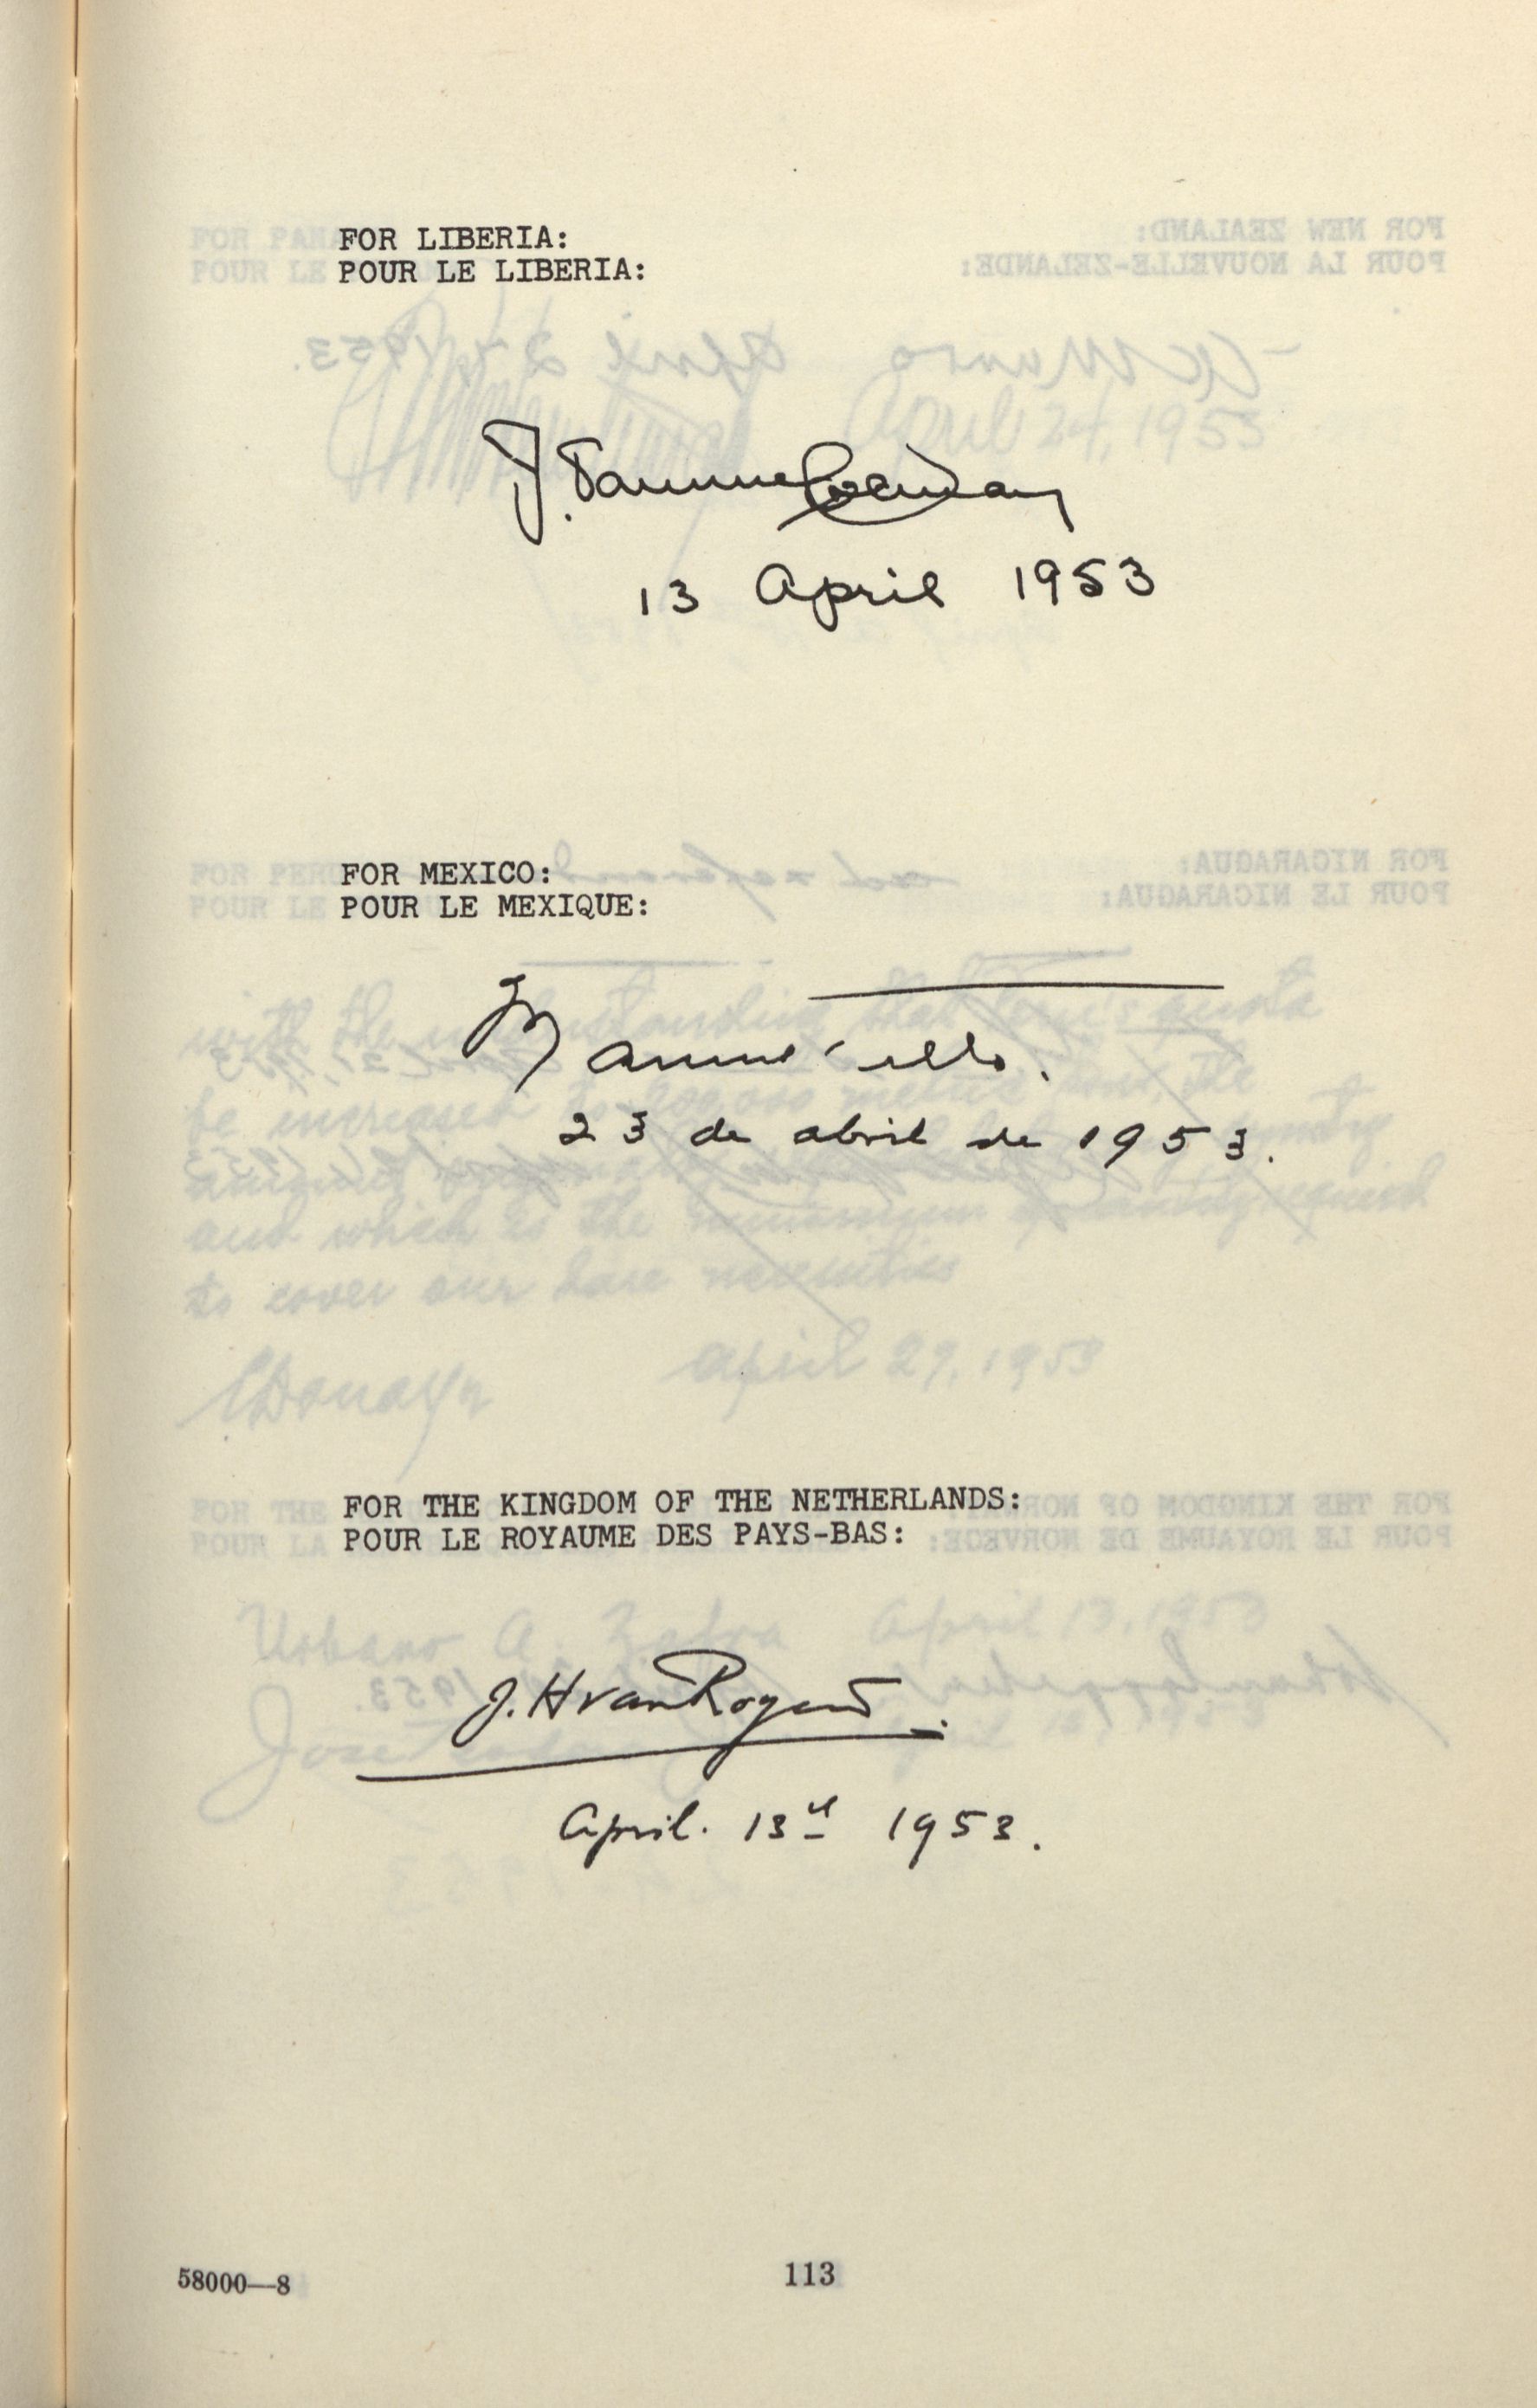 FOR LIBERIA:
POUR LE LIBERIA:
13 April 1953
FOR MEXICO:
POUR LE MEXIQUE:
Manuel Tello.
23 de abril de 1953.
FOR THE KINGDOM OF THE NETHERLANDS:
POUR LE ROYAUME DES PAYS-BAS:
J. H van Royen
April. 13th 1953.
58000—8
113